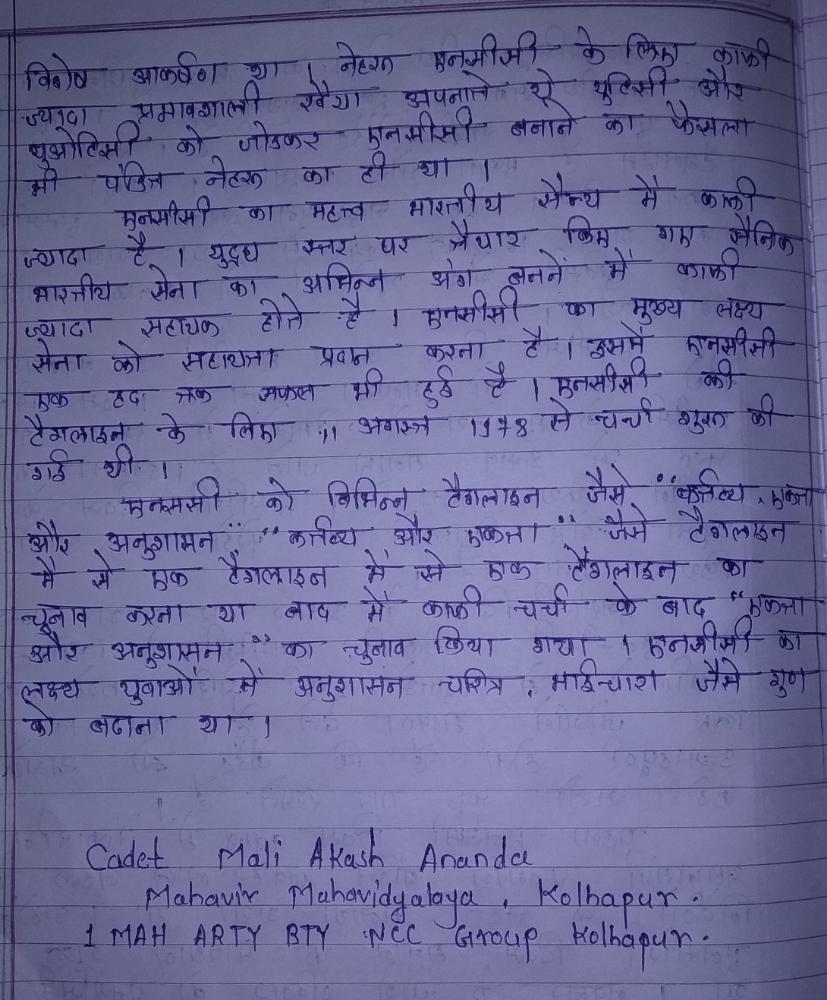 विशेष आकर्षण था । नेहरू एनसीसी के लिए काफी
ज्यादा प्रभावशाली रवैया अपनाते थे युटिसी और
युओटिसी को जोडकर एनसीसी बनाने का फैसला
भी पंडित नेहरू का ही था ।
एनसीसी का महत्व भारतीय सैन्य मे काफी
ज्यादा है । युद्ध स्तर पर तैयार किए गए सैनिक
भारतीय सेना का अभिन्न अंग बननें में काफी
ज्यादा सहायक होते है । एनसीसी का मुख्य लक्ष्य
सेना को सहायता प्रदान करना है । इसमें एनसीसी
एक हद तक सफल भी हुई है । एनसीसी की
टैगलाइन के लिए 11 अगस्त 1978 से चर्चा शुरू की
गई थी ।
एनससी को विभिन्न टैगलाइन जैसे "कर्तव्य, एकता
और अनुशासन" "कर्तव्य और एकता" जैसे टैगलाइन
मै से एक टैगलाइन में से एक टैगलाइन का
चुनाव करना था बाद में काफी चर्चा के बाद "एकता
और अनुशासन" का चुनाव किया गया । एनसीसी का
लक्ष्य युवाओं में अनुशासन चरित्र, भाईचारा जैसे गुण
को बढाना था ।
Cadet Mali Akash Ananda
Mahavir Mahavidyalaya, Kolhapur.
1 MAH ARTY BTY NCC Group Kolhapur.